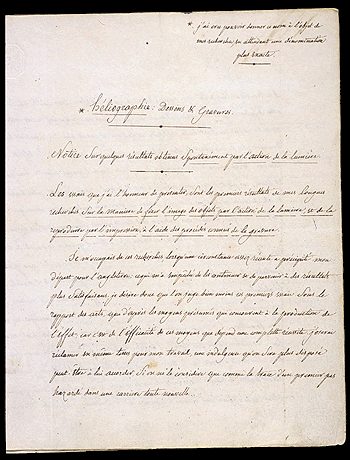 *. j'ai cru pouvoir donner ce nom à l'objet de
mes recherches en attendant une dénomination
plus exacte.
* héliographie. Dessins & Gravures.
Notice sur quelques résultats obtenus spontanément par l'action de la lumière.
Les essais que j'ai l'honneur de présenter, sont les premiers résultats de mes longues
recherches sur la manière de fixer l'image des objets par l'action de la lumière, et de la
reproduire par l'impression, à l'aide des procédés connus de la gravure.
Je m'occupais de ces recherches lorsqu'une circonstance assez récente a précipité mon
départ pour l'angleterre, ce qui m'a empêché de les continuer et de parvenir à des résultats
plus satisfaisans. je désire donc que l'on juge bien moins ces premiers essais sous le
rapport des arts, que d'après les moyens présumés qui concourent à la production de
l'effet; car c'est de l'efficacité de ces moyens que dépend une complette réussite. j'oserai
réclamer en même tems pour mon travail, une indulgence qu'on sera plus disposé
peut-être à lui accorder, si on ne le considère que comme la trace d'un premier pas
hazardé dans une carrière toute nouvelle.